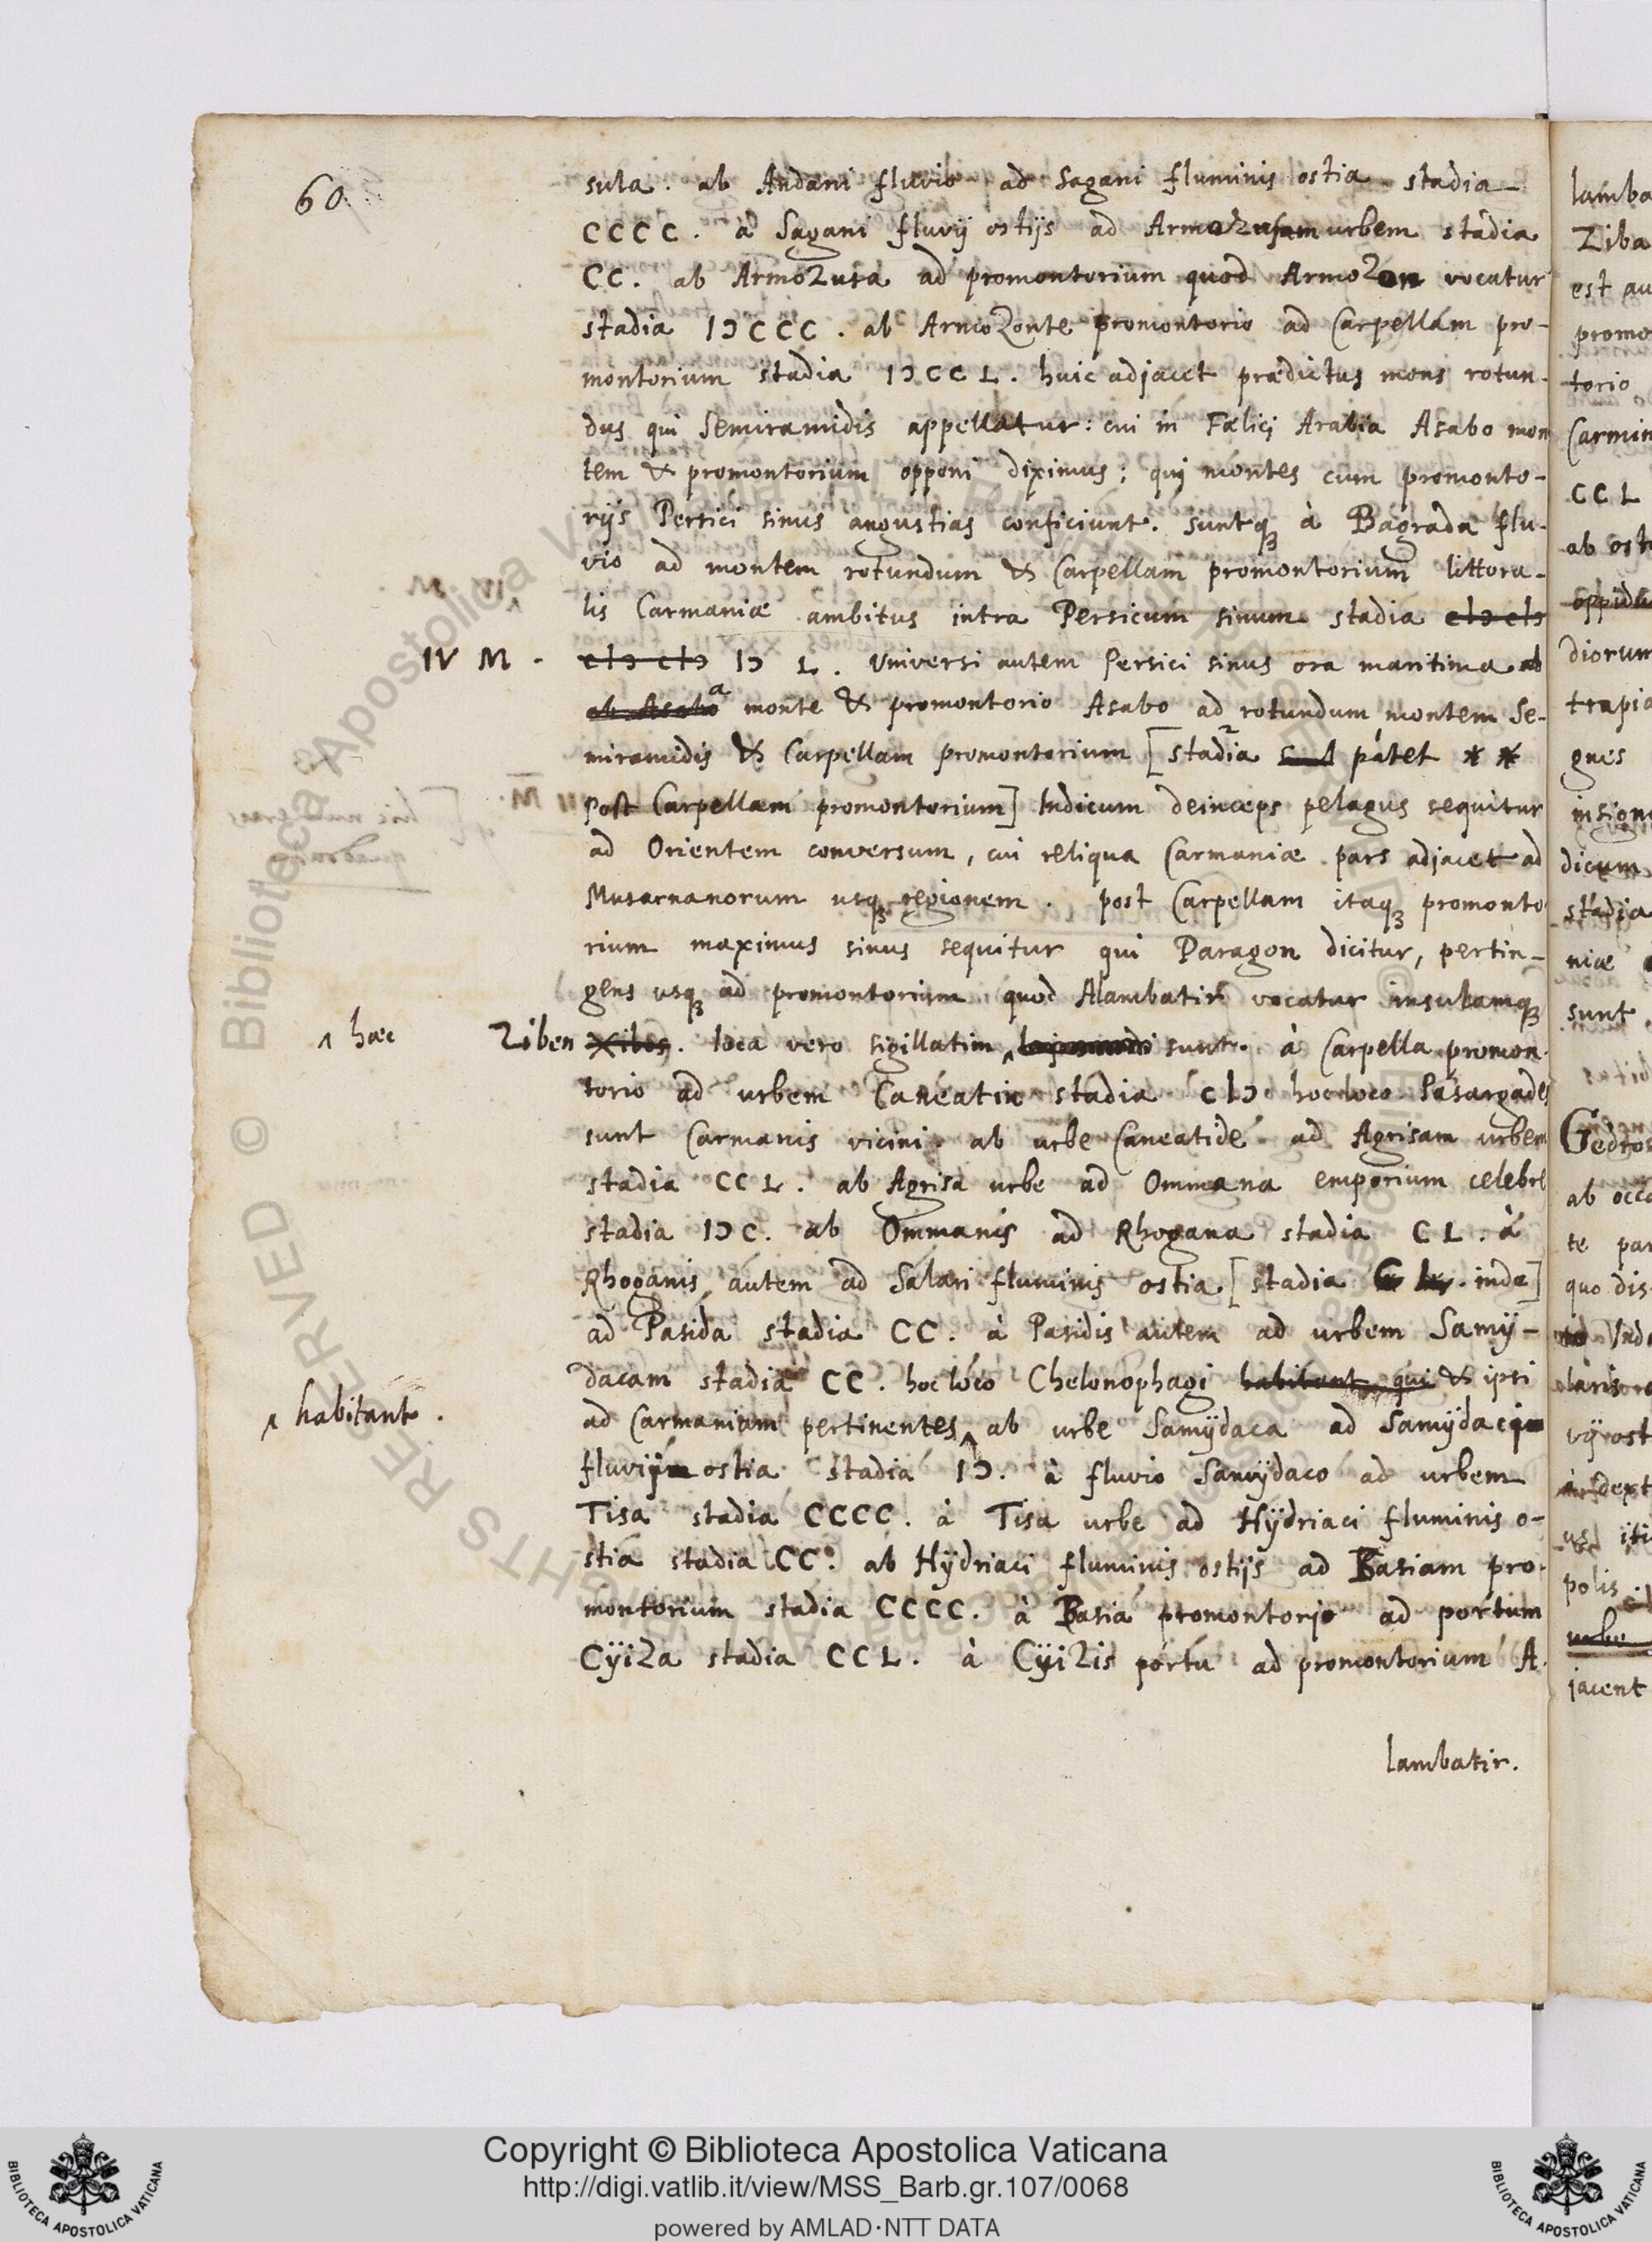 60
sula. ab Andani fluvio ad Sagani fluminis ostia stadia
CCCC. à Sagani fluvij ostijs ad Armozusam urbem stadia
CC. ab Armozusa ad promontorium quod Armozon vocatur
stadia IↃCCC. ab Armozonte promontorio ad Carpellam pro-
montorium stadia IↃCCL. huic adjacet prædictus mons rotun-
dus qui Semiramidis appellatur: cui in Fælici Arabia Asabo mon
tem & promontorium opponi diximus; qui montes cum promonto-
rijs Persici sinus angustias conficiunt. suntq3 à Bagrada flu-
vio ad montem rotundum & Carpellam promontorium littora-
lis Carmaniæ ambitus intra Persicum sinum stadia cIↃ cIↃ
IV M. cIↃ cIↃ IↃ L. Universi autem Persici sinus ora maritima ab
ab Asabo a monte & promontorio Asabo ad rotundum montem Se-
miramidis & Carpellam promontorium [stadia patet * *
Post Carpellam promontorium] Indicum deinceps pelagus sequitur
ad Orientem conversum, cui reliqua Carmaniæ pars adjacet ad
Musarnanorum usq3 regionem. post Carpellam itaq3 promonto
rium maximus sinus sequitur qui Paragon dicitur, pertin-
gens usq3 ad promontorium quod Alambatir vocatur insulamq3
∧ hæc Ziben Xibos. loca vero sigillatim ∧ sunt. à Carpella promon-
torio ad urbem Caneatin stadia cIↃ hoc loco Pasargades
sunt Carmanis vicini. ab urbe Caneatide ad Agrisam urbem
stadia CCL. ab Agrisa urbe ad Ommana emporium celebre
stadia IↃC. ab Ommanis ad Rhogana stadia CL. à
Rhoganis autem ad Salari fluminis ostia [stadia inde]
ad Pasida stadia CC. à Pasidis autem ad urbem Samÿ-
dacam stadia CC. hoc loco Chelonophagi habitant qui & ipsi
∧ habitant. ad Carmaniam pertinentes ∧ ab urbe Samÿdaca ad Samÿdaci
fluvij ostia stadia IↃ. à fluvio Samÿdaco ad urbem
Tisa stadia CCCC. à Tisa urbe ad Hÿdriaci fluminis o-
stia stadia CC. ab Hÿdriaci fluminis ostijs ad Basiam pro-
montorium stadia CCCC. à Basia promontorio ad portum
Cÿiza stadia CCL. à Cÿizis portu ad promontorium A-
lambatir.
lamba
Ziba
est au
promo
torio
Carmin
CCL
ab ost
oppidu
diorum
trapia
gnes
insign
dicum
stadia
niæ
sunt.
Gedros
ab occa
te par
quo dis
Inde
laris
vÿ ost
dext
us iti
polis.
urbe
jacent
© Biblioteca Apostolica Vaticana
RIGHTS RESERVED
BIBLIOTECA APOSTOLICA VATICANA
Copyright © Biblioteca Apostolica Vaticana
http://digi.vatlib.it/view/MSS_Barb.gr.107/0068
powered by AMLAD·NTT DATA
BIBLIOTECA APOSTOLICA VATICANA